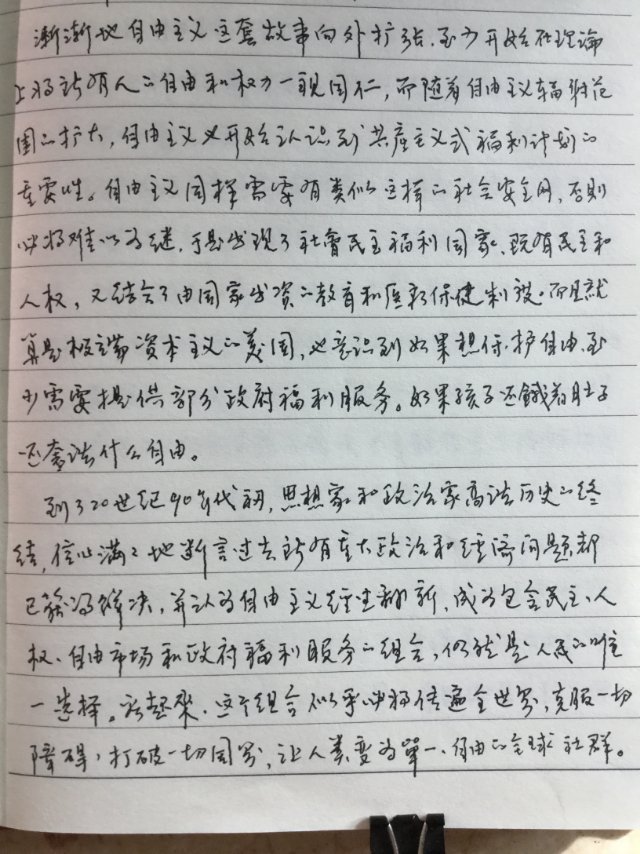 渐渐地自由主义这套故事向外扩张，至少开始在理论
上将所有人的自由和权力一视同仁，而随着自由主义辐射范
围的扩大，自由主义义开始认识到共产主义式福利计划的
重要性。自由主义同样需要有类似这样的社会安全网，否则
必将难以为继，于是出现了社會民主福利国家，既有民主和
人权，又结合了由国家出资的教育和医疗保健制设。而且就
算是极端资本主义的美国，也意识到如果想保护自由，至
少需要提供部分政府福利服务。如果孩子还餓着肚子
还奢谈什么自由。
到了20世纪90年代初，思想家和政治家高谈历史的终
结，信心满々地断言过去所有重大政治和经济问题都
已获得解决，并认为自由主义经过翻新，成为包含民主、人
权、自由市场和政府福利服务的组合，仍然是人民的唯
一选择。说起来，这个组合似乎必将传遍全世界，克服一切
障碍，打破一切国界，让人类变为單一、自由的全球社群。